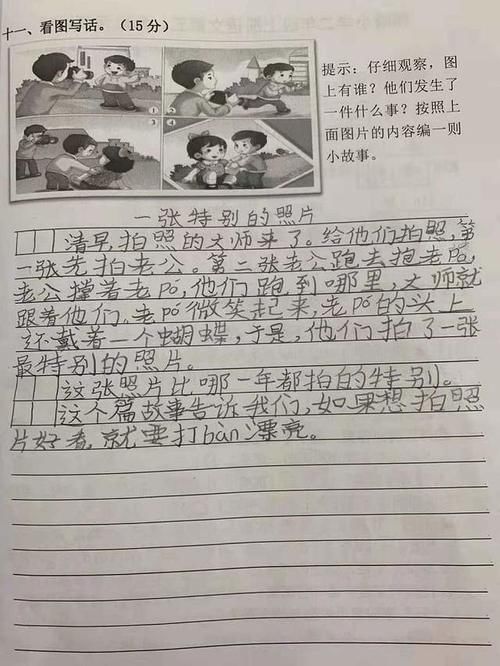 十一、看图写话。（15分）
提示：仔细观察，图
上有谁？他们发生了
一件什么事？按照上
面图片的内容编一则
小故事。
①
②
③
④
一张特别的照片
清早，拍照的大师来了。给他们拍照，第
一张先拍老公。第二张老公跑去抱老Pó，
老公撑着老Pó，他们跑到哪里，大师就
跟着他们。老Pó微笑起来，老Pó的头上
还戴着一个蝴蝶，于是，他们拍了一张
最特别的照片。
这张照片比哪一年都拍的特别。
这个篇故事告诉我们，如果想拍照
片好看，就要打bàn漂亮。